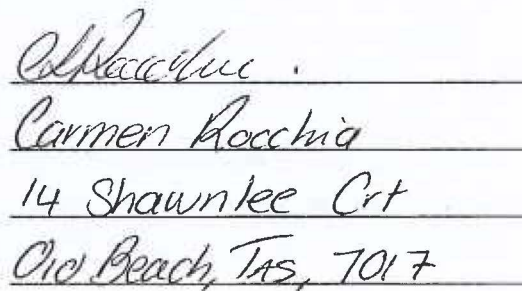 Carmen Rocchia
14 Shawnlee Crt
Old Beach, TAS, 7017